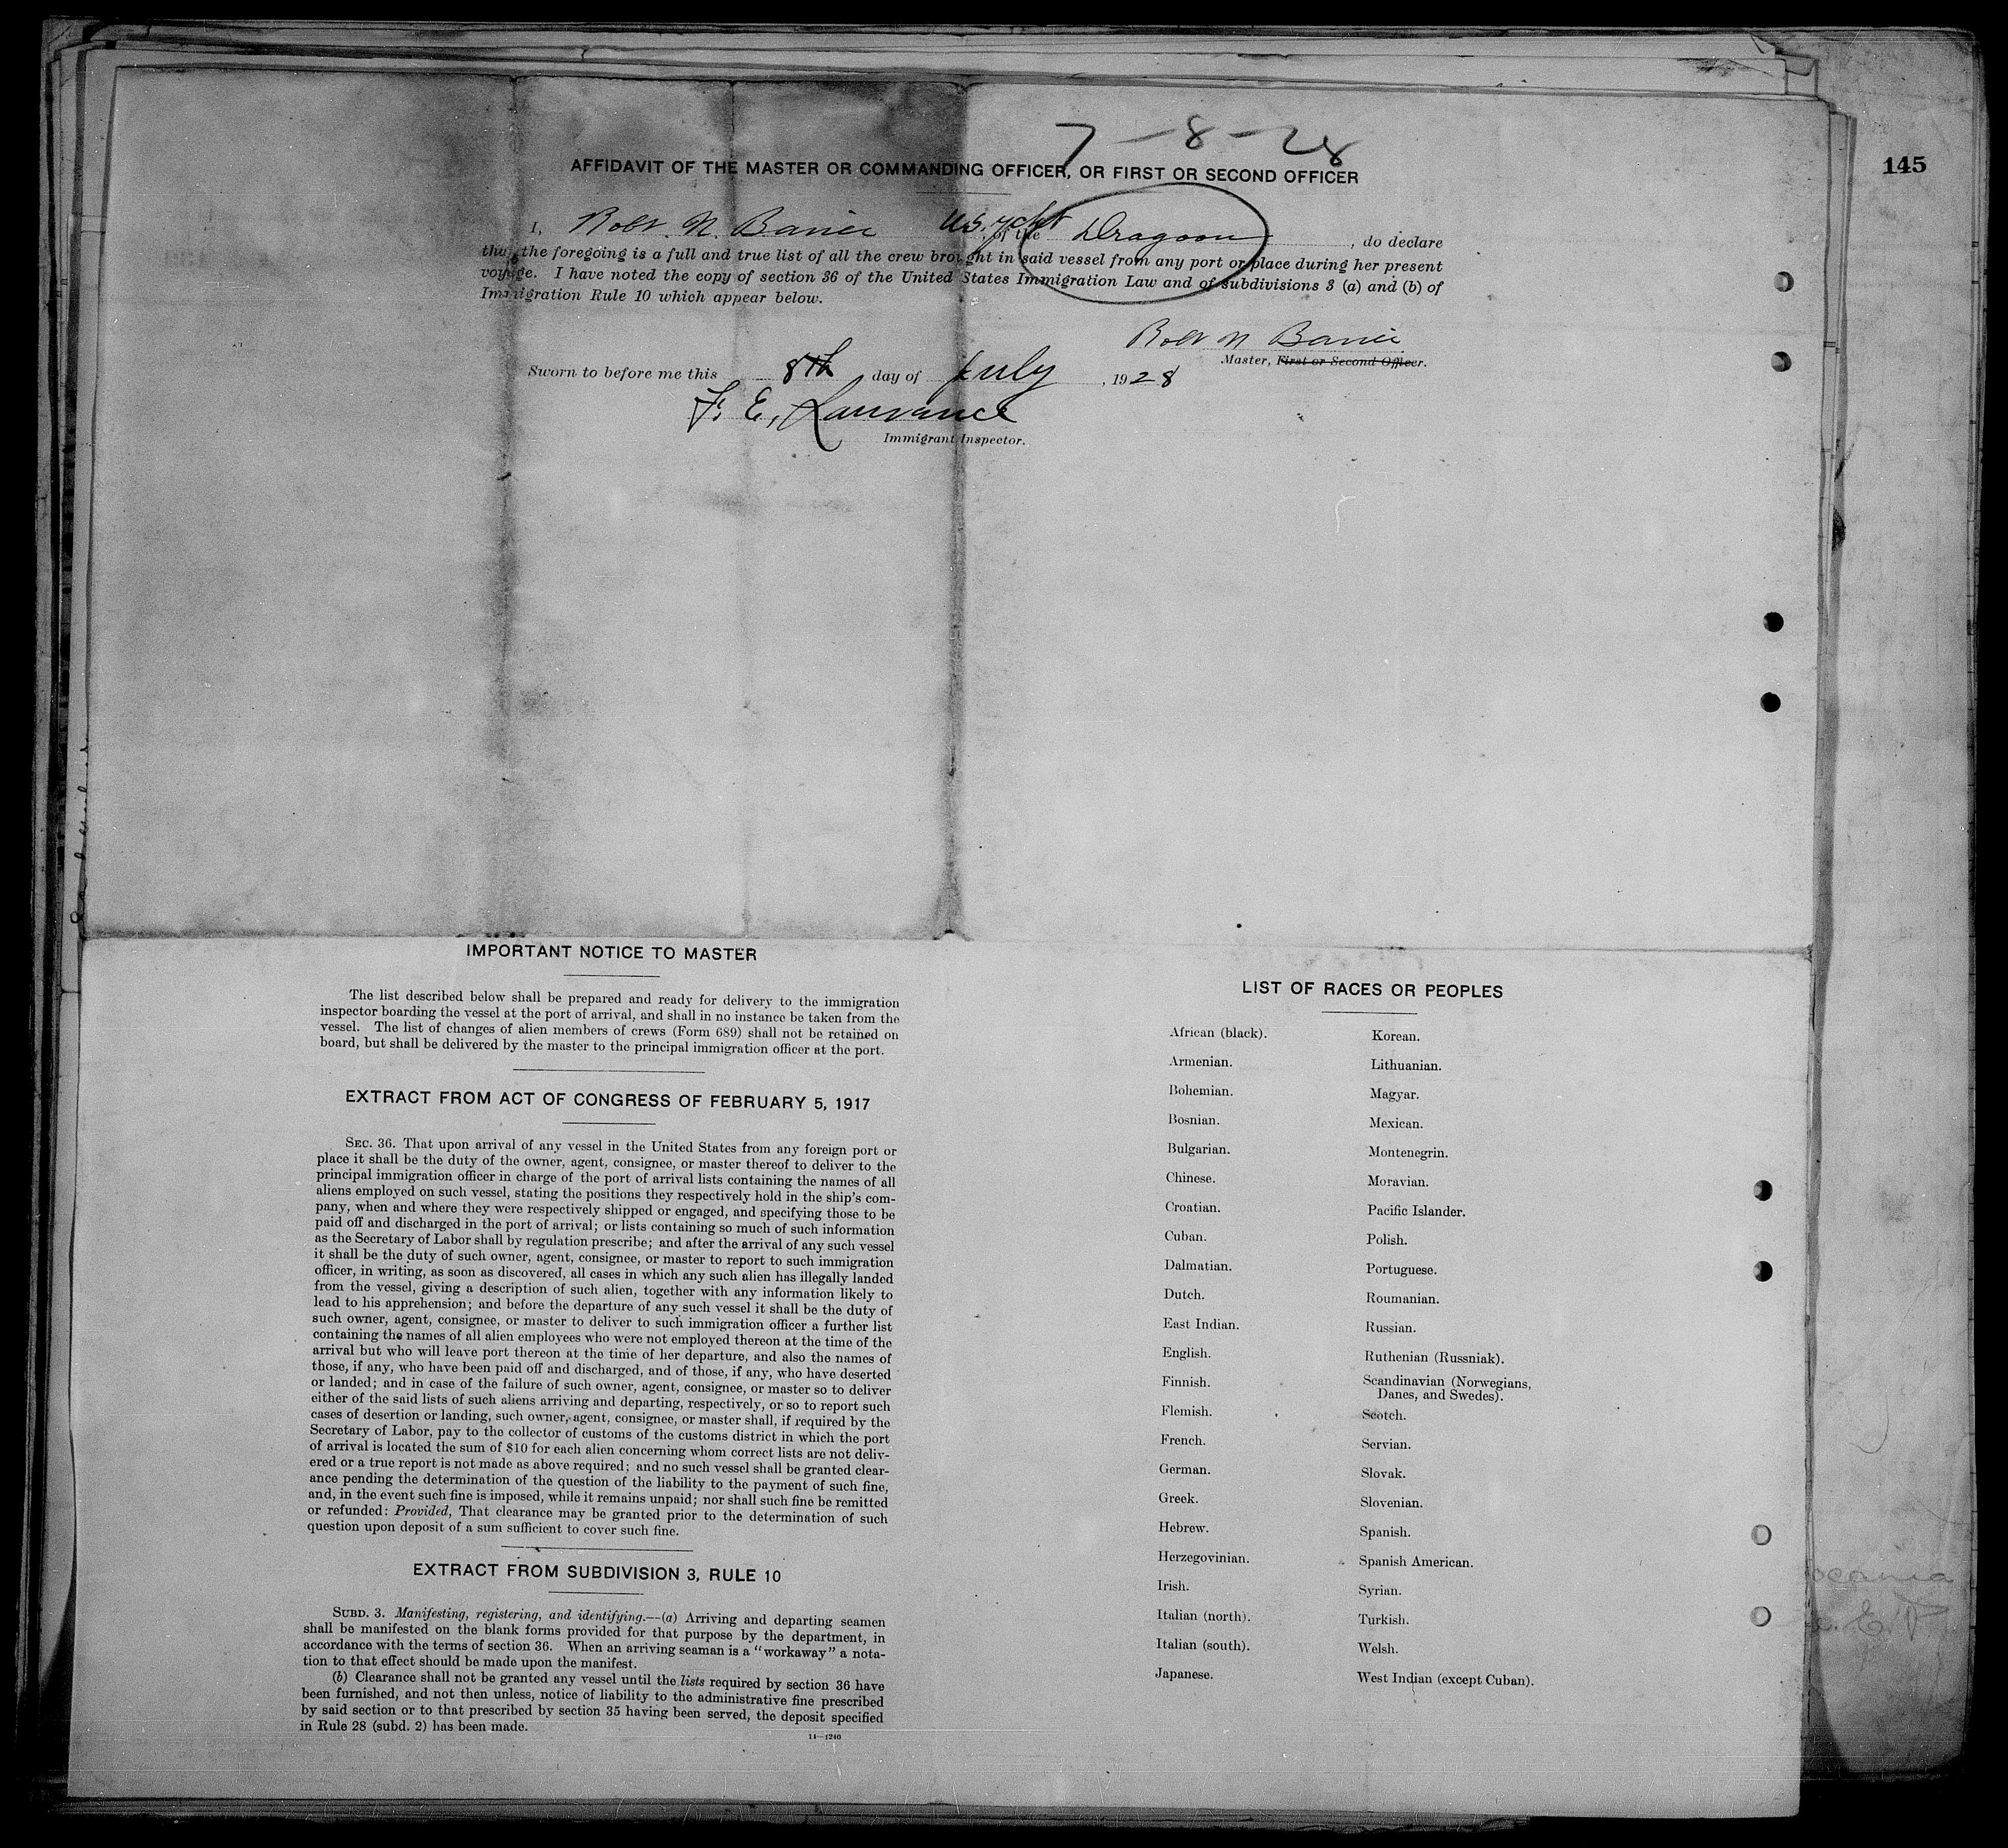 7-8-28
145
AFFIDAVIT OF THE MASTER OR COMMANDING OFFICER, OR FIRST OR SECOND OFFICER
I, Robt. N. U.S. Yacht of the Dragoon, do declare
that the foregoing is a full and true list of all the crew brought in said vessel from any port or place during her present
voyage. I have noted the copy of section 36 of the United States Immigration Law and of subdivisions 3 (a) and (b) of
Immigration Rule 10 which appear below.
Robt N
Master, First or Second Officer.
Sworn to before me this 8th day of July, 1928
F. E. Laurance
Immigrant Inspector.
IMPORTANT NOTICE TO MASTER
The list described below shall be prepared and ready for delivery to the immigration
inspector boarding the vessel at the port of arrival, and shall in no instance be taken from the
vessel. The list of changes of alien members of crews (Form 689) shall not be retained on
board, but shall be delivered by the master to the principal immigration officer at the port.
EXTRACT FROM ACT OF CONGRESS OF FEBRUARY 5, 1917
SEC. 36. That upon arrival of any vessel in the United States from any foreign port or
place it shall be the duty of the owner, agent, consignee, or master thereof to deliver to the
principal immigration officer in charge of the port of arrival lists containing the names of all
aliens employed on such vessel, stating the positions they respectively hold in the ship's com-
pany, when and where they were respectively shipped or engaged, and specifying those to be
paid off and discharged in the port of arrival; or lists containing so much of such information
as the Secretary of Labor shall by regulation prescribe; and after the arrival of any such vessel
it shall be the duty of such owner, agent, consignee, or master to report to such immigration
officer, in writing, as soon as discovered, all cases in which any such alien has illegally landed
from the vessel, giving a description of such alien, together with any information likely to
lead to his apprehension; and before the departure of any such vessel it shall be the duty of
such owner, agent, consignee, or master to deliver to such immigration officer a further list
containing the names of all alien employees who were not employed thereon at the time of the
arrival but who will leave port thereon at the time of her departure, and also the names of
those, if any, who have been paid off and discharged, and of those, if any, who have deserted
or landed; and in case of the failure of such owner, agent, consignee, or master so to deliver
either of the said lists of such aliens arriving and departing, respectively, or so to report such
cases of desertion or landing, such owner, agent, consignee, or master shall, if required by the
Secretary of Labor, pay to the collector of customs of the customs district in which the port
of arrival is located the sum of $10 for each alien concerning whom correct lists are not deliv-
ered or a true report is not made as above required; and no such vessel shall be granted clear-
ance pending the determination of the question of the liability to the payment of such fine,
and, in the event such fine is imposed, while it remains unpaid; nor shall such fine be remitted
or refunded: Provided, That clearance may be granted prior to the determination of such
question upon deposit of a sum sufficient to cover such fine.
EXTRACT FROM SUBDIVISION 3, RULE 10
SUBD. 3. Manifesting, registering, and identifying.—(a) Arriving and departing seamen
shall be manifested on the blank forms provided for that purpose by the department, in
accordance with the terms of section 36. When an arriving seaman is a "workaway" a nota-
tion to that effect should be made upon the manifest.
(b) Clearance shall not be granted any vessel until the lists required by section 36 have
been furnished, and not then unless, notice of liability to the administrative fine prescribed
by said section or to that prescribed by section 35 having been served, the deposit specified
in Rule 28 (subd. 2) has been made.
14—1240
LIST OF RACES OR PEOPLES
African (black).
Armenian.
Bohemian.
Bosnian.
Bulgarian.
Chinese.
Croatian.
Cuban.
Dalmatian.
Dutch.
East Indian.
English.
Finnish.
Flemish.
French.
German.
Greek.
Hebrew.
Herzegovinian.
Irish.
Italian (north).
Italian (south).
Japanese.
Korean.
Lithuanian.
Magyar.
Mexican.
Montenegrin.
Moravian.
Pacific Islander.
Polish.
Portuguese.
Roumanian.
Russian.
Ruthenian (Russniak).
Scandinavian (Norwegians,
Danes, and Swedes).
Scotch.
Servian.
Slovak.
Slovenian.
Spanish.
Spanish American.
Syrian.
Turkish.
Welsh.
West Indian (except Cuban).